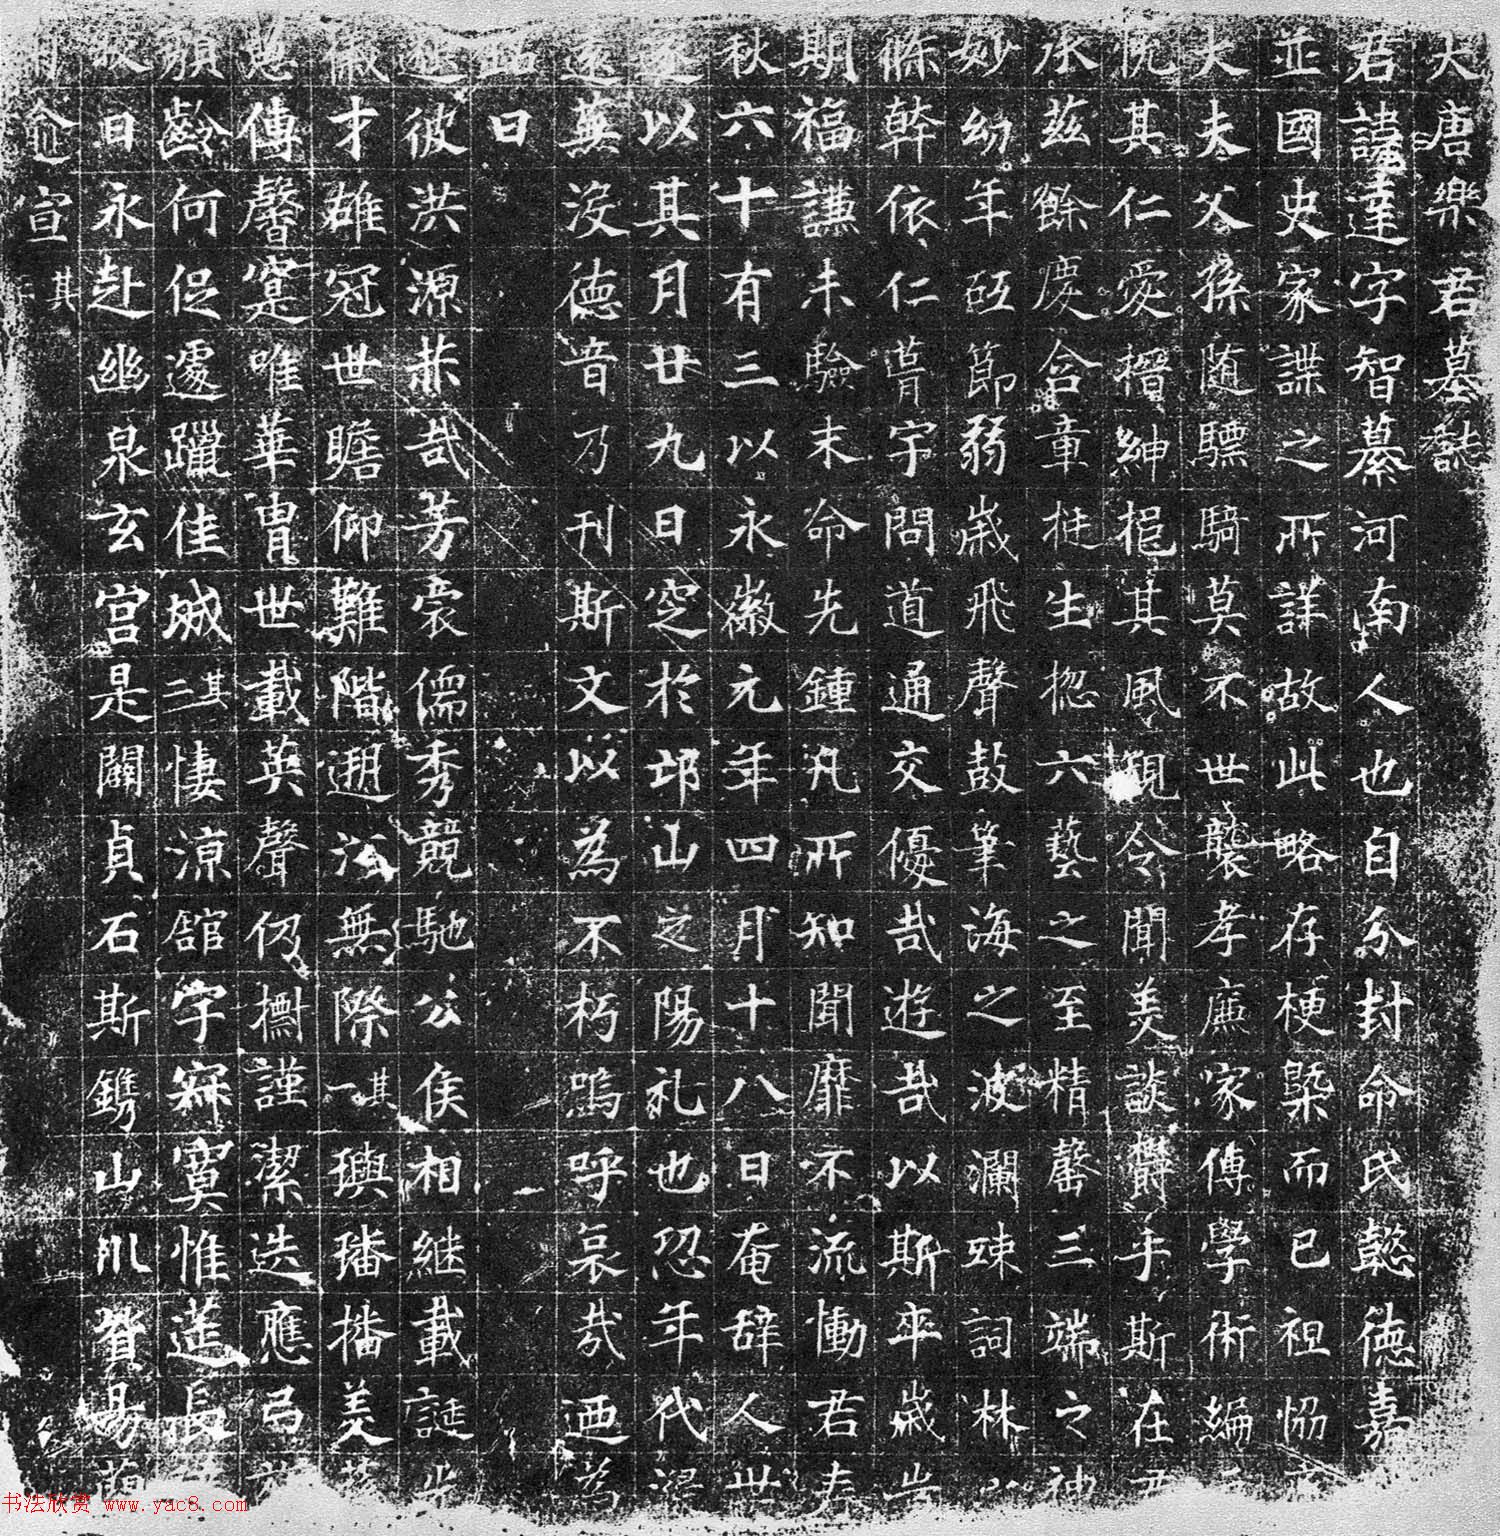 大唐樂君墓誌
君諱達字智綦河南人也自分封命氏懿德嘉
並國史家諜之所詳故此略存梗槩而已祖恊
大夫父孫随驃騎莫不世襲孝廉家傳學術編
恍其仁愛搢紳挹其風覩令聞美談欝乎斯在
承茲餘慶含章挺生揔六藝之至精罄三端之神
妙幼年砥節弱歲飛聲鼓筆海之波瀾竦詞林
條幹依仁葺宇問道通交優哉遊哉以斯卒歲
期福謙未驗末命先鍾凡所知聞靡不流慟君
秋六十有三以永徽元年四月十八日奄辞人世
以其月廿九日窆於邙山之陽礼也恐年代
遠蕪没德音乃刊斯文以為不朽嗚呼哀哉迺為
銘曰
彼洪源恭哉芳裔儒秀競馳公侯相継載誕
徽才雄冠世瞻仰難階遡㳂無際其一璵璠播美
傳馨寔唯華胄世載英聲仍擕謹潔迭應弓
頹齡何促遽躐佳城其二悽涼舘宇寂寞惟莚長
日永赴幽泉玄宫是闢貞石斯鐫山川貿易
逾宣其
书法欣赏 www.yac8.com